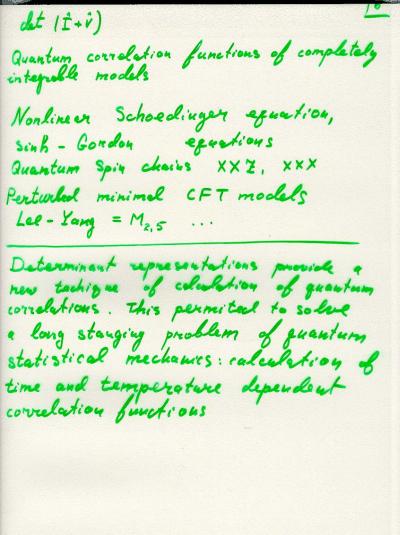 10
det (Î+v̂)
Quantum correlation functions of completely
integrable models
Nonlinear Schoedinger equation,
sinh-Gordon equations
Quantum Spin chains XXZ, XXX
Perturbed minimal CFT models
Lee-Yang = M₂,₅ ...
Determinant representations provide a
new tachique of calculation of quantum
correlations. This permited to solve
a long stanging problem of quantum
statistical mechanics: calculation of
time and temperature dependent
correlation functions